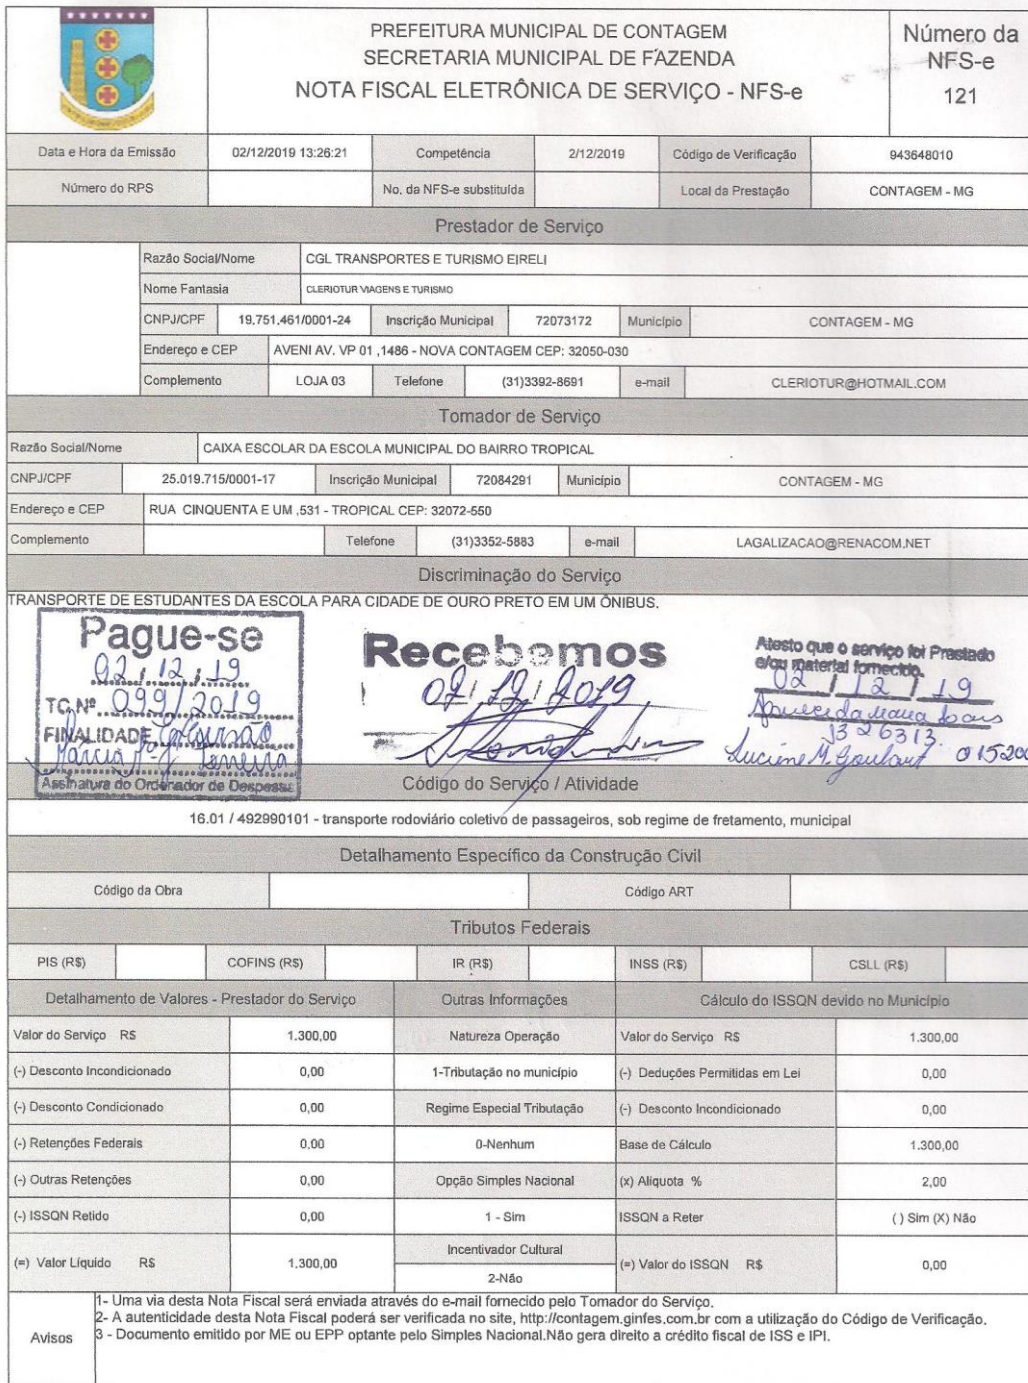 PREFEITURA MUNICIPAL DE CONTAGEM
SECRETARIA MUNICIPAL DE FAZENDA
NOTA FISCAL ELETRÔNICA DE SERVIÇO - NFS-e
Número da
NFS-e
121
Data e Hora da Emissão 02/12/2019 13:26:21 Competência 2/12/2019 Código de Verificação 943648010
Número do RPS No. da NFS-e substituída Local da Prestação CONTAGEM - MG
Prestador de Serviço
Razão Social/Nome CGL TRANSPORTES E TURISMO EIRELI
Nome Fantasia CLERIOTUR VIAGENS E TURISMO
CNPJ/CPF 19.751.461/0001-24 Inscrição Municipal 72073172 Município CONTAGEM - MG
Endereço e CEP AVENI AV. VP 01 ,1486 - NOVA CONTAGEM CEP: 32050-030
Complemento LOJA 03 Telefone (31)3392-8691 e-mail CLERIOTUR@HOTMAIL.COM
Tomador de Serviço
Razão Social/Nome CAIXA ESCOLAR DA ESCOLA MUNICIPAL DO BAIRRO TROPICAL
CNPJ/CPF 25.019.715/0001-17 Inscrição Municipal 72084291 Município CONTAGEM - MG
Endereço e CEP RUA CINQUENTA E UM ,531 - TROPICAL CEP: 32072-550
Complemento Telefone (31)3352-5883 e-mail LAGALIZACAO@RENACOM.NET
Discriminação do Serviço
TRANSPORTE DE ESTUDANTES DA ESCOLA PARA CIDADE DE OURO PRETO EM UM ÔNIBUS.
Pague-se
02/12/19
TC.Nº 099/2019
FINALIDADE Excursão
Márcia Ferreira
Assinatura do Ordenador de Despesas
Recebemos
02/12/2019
Atesto que o serviço foi Prestado
e/ou material fornecido.
02/12/19
Aparecida Maria Soares
1326313
Luciene M. Goulart 01520
Código do Serviço / Atividade
16.01 / 492990101 - transporte rodoviário coletivo de passageiros, sob regime de fretamento, municipal
Detalhamento Específico da Construção Civil
Código da Obra Código ART
Tributos Federais
PIS (R$) COFINS (R$) IR (R$) INSS (R$) CSLL (R$)
Detalhamento de Valores - Prestador do Serviço Outras Informações Cálculo do ISSQN devido no Município
Valor do Serviço R$ 1.300,00 Natureza Operação Valor do Serviço R$ 1.300,00
(-) Desconto Incondicionado 0,00 1-Tributação no município (-) Deduções Permitidas em Lei 0,00
(-) Desconto Condicionado 0,00 Regime Especial Tributação (-) Desconto Incondicionado 0,00
(-) Retenções Federais 0,00 0-Nenhum Base de Cálculo 1.300,00
(-) Outras Retenções 0,00 Opção Simples Nacional (x) Alíquota % 2,00
(-) ISSQN Retido 0,00 1 - Sim ISSQN a Reter ( ) Sim (X) Não
(=) Valor Líquido R$ 1.300,00 Incentivador Cultural 2-Não (=) Valor do ISSQN R$ 0,00
Avisos
1- Uma via desta Nota Fiscal será enviada através do e-mail fornecido pelo Tomador do Serviço.
2- A autenticidade desta Nota Fiscal poderá ser verificada no site, http://contagem.ginfes.com.br com a utilização do Código de Verificação.
3 - Documento emitido por ME ou EPP optante pelo Simples Nacional.Não gera direito a crédito fiscal de ISS e IPI.